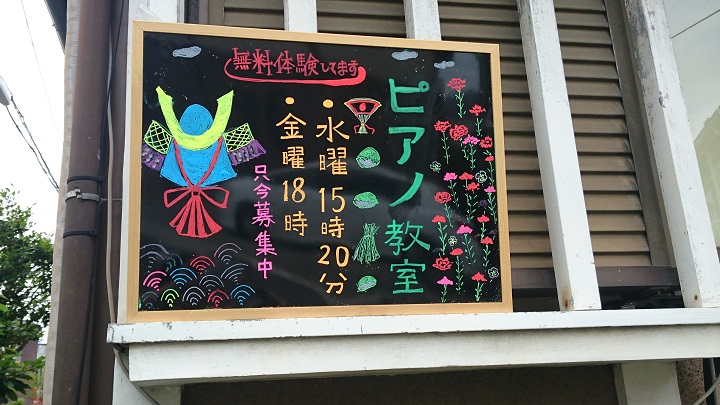 無料体験してます
ピアノ教室
・水曜15時20分
・金曜18時
只今募集中